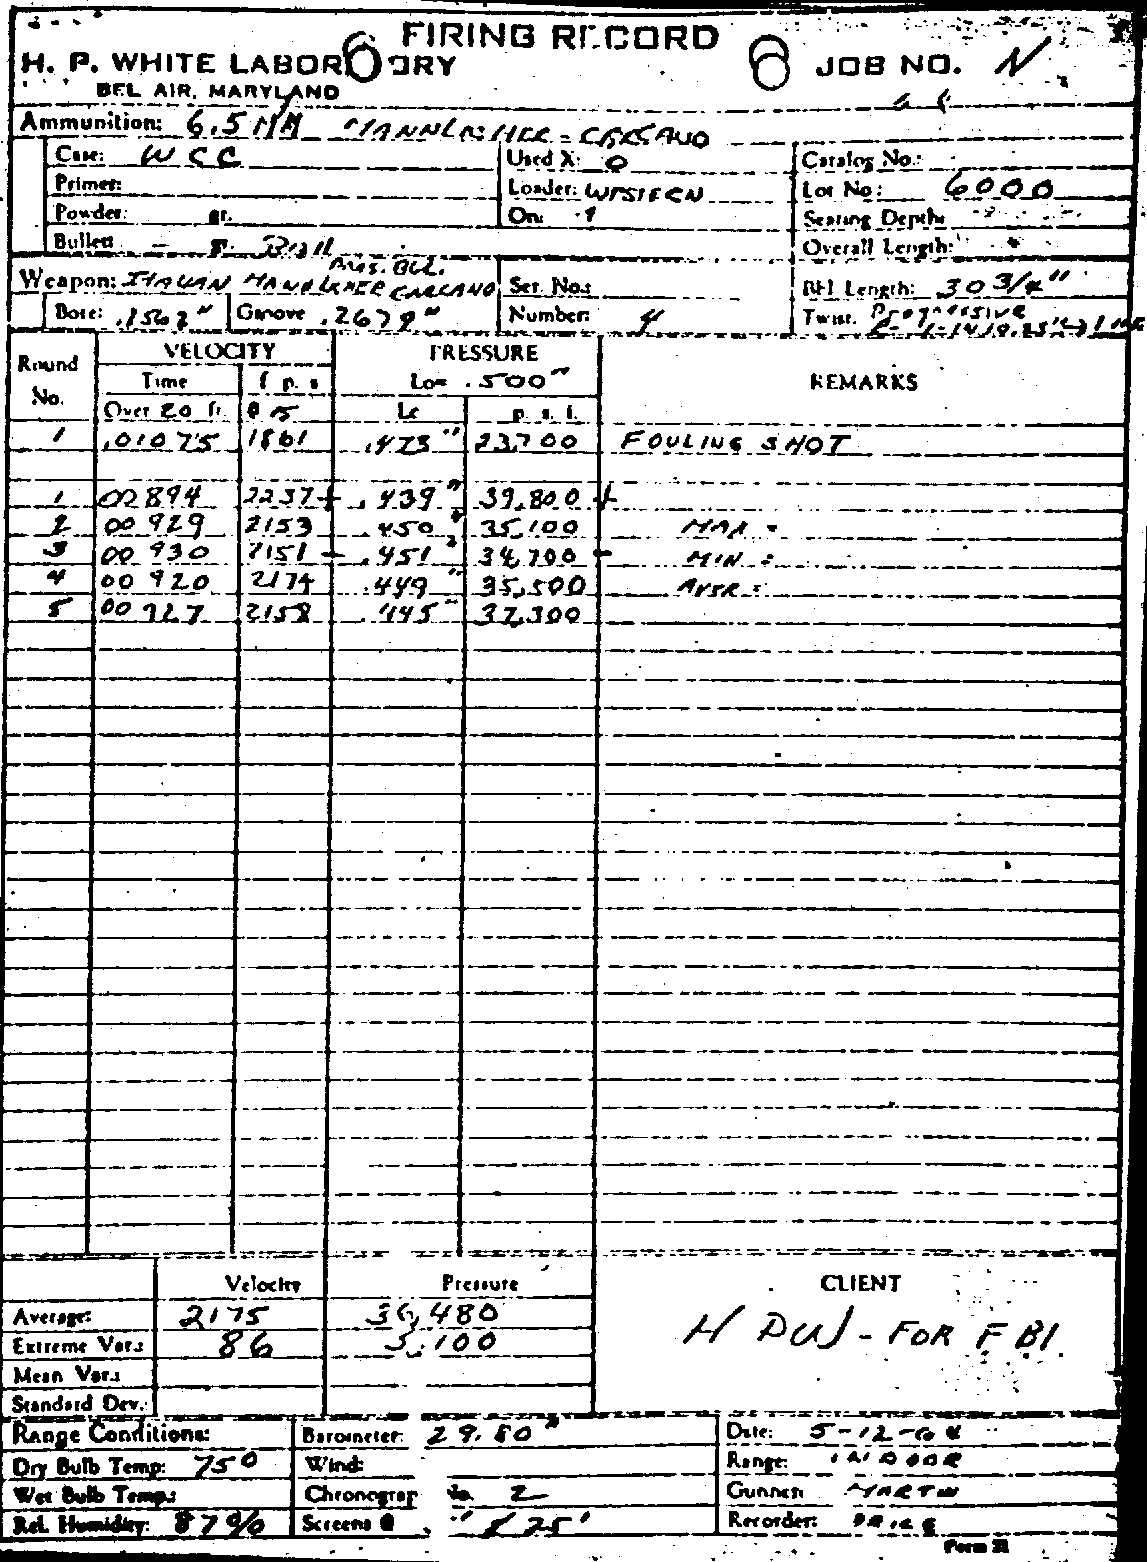 FIRING RECORD
H. P. WHITE LABORATORY JOB NO. N
BEL AIR, MARYLAND
Ammunition: 6.5 MM MANNLICHER - CARCANO
Case: WCC Used X: 0 Catalog No.:
Primer: Loader: WESTERN Lot No.: 6000
Powder: gr. On: Seating Depth:
Bullet: - gr. Ball Overall Length:
Weapon: ITALIAN MANNLICHER CARCANO Ser. No.: Bbl Length: 30 3/4"
Bore: .2562" Groove .2679" Number: 4 Twist: Progressive
Round No. VELOCITY PRESSURE REMARKS
Time f. p. s. Lo= .500"
Over 20 ft. @ 15 Lc p. s. i.
1 .01075 1861 .473" 23,700 FOULING SHOT
1 00894 2237+ .439" 39,800 +
2 00929 2153 .450" 35,100 MAX =
3 00930 2151 - .451" 34,700 - MIN =
4 00920 2174 .449" 35,500 AVER =
5 00927 2158 .445" 37,300
Velocity Pressure CLIENT
Average: 2175 36,480 H P W - FOR FBI
Extreme Var.: 86 5,100
Mean Var.:
Standard Dev.:
Range Conditions: Barometer: 29.80" Date: 5-12-64
Dry Bulb Temp: 75° Wind: Range: INDOOR
Wet Bulb Temp: Chronograph No. 2 Gunner: MARTIN
Rel. Humidity: 87% Screens @ 25' Recorder: PRICE
Form 21